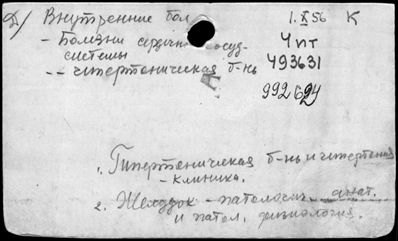 Д/ Внутренние бол 1. X 56 К
- Болезни сердечно сосуд-
системы Чит
-- гипертоническая б-нь 493631
992624
1. Гипертоническая б-нь и гипертония
- клиника.
2. Желудок - патологич. анат.
и патол. физиология.